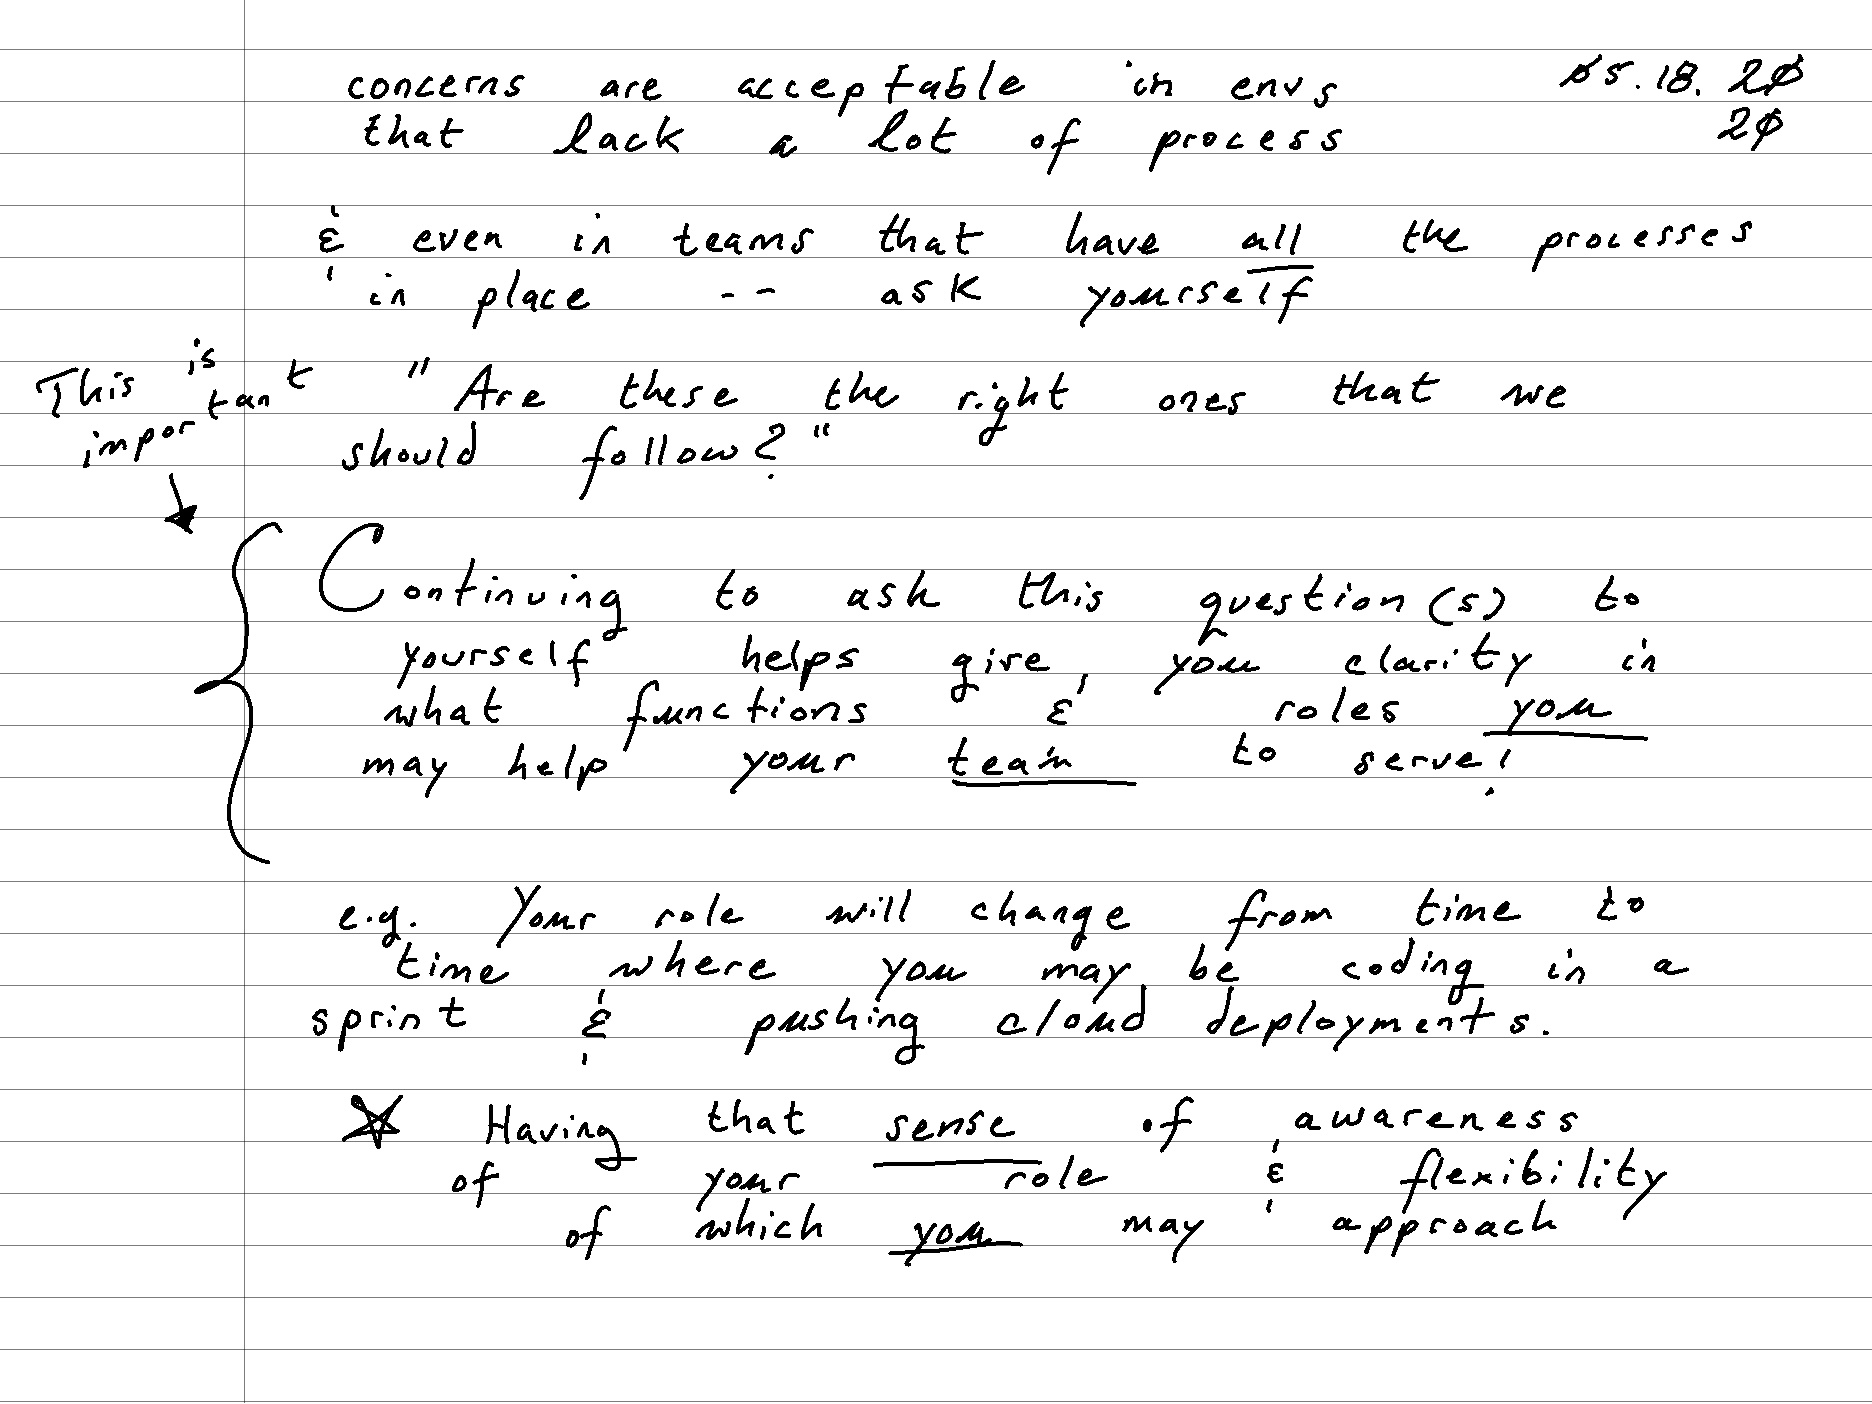 concerns are acceptable in envs
05.18.20
20
that lack a lot of process
& even in teams that have all the processes
in place -- ask yourself
This is
important
"Are these the right ones that we
should follow?"
Continuing to ask this question(s) to
yourself helps give you clarity in
what functions & roles you
may help your team to serve!
e.g. Your role will change from time to
time where you may be coding in a
sprint & pushing cloud deployments.
Having that sense of awareness
of your role & flexibility
of which you may approach